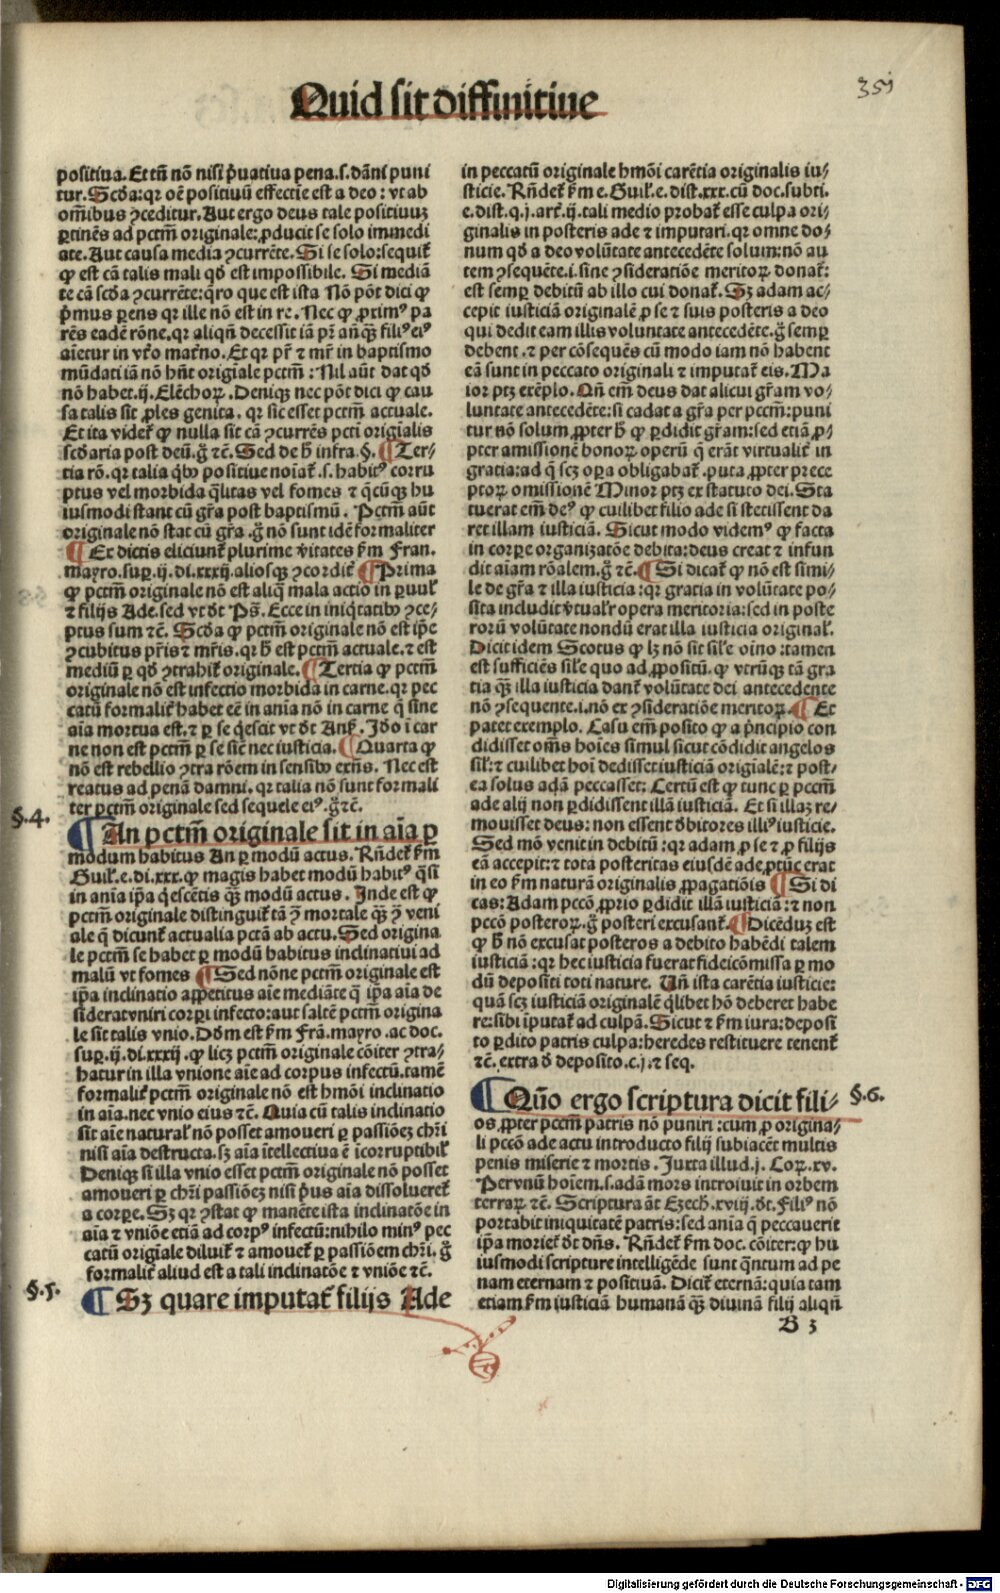 Quid sit diffinitiue
351
positiua. Et tñ nõ nisi p̃uatiua pena.s.dãni puni
tur. Scđa: qꝛ oẽ positiuũ effectiẽ est a deo: vt ab
om̃ibus ꝯceditur. Aut ergo deus tale positiuuꝫ
ꝑtinẽs ad pctm̃ originale: ꝓducit se solo immedi
ate. Aut causa media ꝯcurrẽte. Si se solo: sequit᷑
ꝙ est cã talis mali qđ est impossibile. Si mediã
te cã scđa ꝯcurrẽte: q̃ro que est ista Nõ põt dici ꝙ
p̃mus parens qꝛ ille nõ est in re. Nec ꝙ ꝓximꝰ pa
rẽs eadẽ rõne. qꝛ aliqñ decessit iã pr̃ añq̃ꝫ filiꝰ eiꝰ
aĩetur in vt̃ro mat̃no. Et qꝛ pr̃ ⁊ mr̃ in baptismo
mũdati iã nõ hñt origĩale pctm̃: Nil aũt dat qđ
nõ habet.ij. Elẽchoꝝ. Deniqꝫ nec põt dici ꝙ cau
sa talis sit ꝓles genita. qꝛ sic esset pctm̃ actuale.
Et ita videt᷑ ꝙ nulla sit cã ꝯcurrẽs pcti origĩalis
scđaria post deũ. g̃ ⁊c̃. Sed de h̃ infra.§. ¶ Ter-
tia rõ. qꝛ talia q̃bꝰ positiue noĩat᷑.s. habitꝰ corru
ptus vel morbida q̃litas vel fomes ⁊ q̃cũqꝫ hu
iusmodi stant cũ gr̃a post baptismũ. Pctm̃ aũt
originale nõ stat cũ gr̃a. g̃ nõ sunt idẽ formaliter
¶ Ex dictis eliciunt᷑ plurime ṽitates ẜm Fran.
mayro.suꝑ.ij.di.xxxij.aliosqꝫ ꝯcordit᷑ ¶ Prima
ꝙ pctm̃ originale nõ est aliq̃ mala actio in ꝑuul᷑
⁊ filijs Ade. sed vt đt Ps̃. Ecce in iniq̃tatibꝰ ꝯce-
ptus sum ⁊c̃. Scđa ꝙ pctm̃ originale nõ est ip̃e
ꝯcubitus pr̃is ⁊ mr̃is. qꝛ h̃ est pctm̃ actuale. ⁊ est
mediũ ꝑ qđ ꝯtrahit᷑ originale. ¶ Tertia ꝙ pctm̃
originale nõ est infectio morbida in carne. qꝛ pec
catũ formalit᷑ habet eẽ in anĩa nõ in carne q̃ sine
aĩa mortua est. ⁊ ꝑ se q̃escit vt đt Anß. Jđo ĩ car
ne non est pctm̃ ꝑ se sic̃ nec iusticia. ¶ Quarta ꝙ
nõ est rebellio ꝯtra rõem in sensibꝰ exñs. Nec est
reatus ad penã damni. qꝛ talia nõ sunt formali
ter pctm̃ originale sed sequele eiꝰ. g̃ ⁊c̃.
§.4.
¶ An pctm̃ originale sit in aĩa ꝑ
modum habitus An ꝑ modũ actus. Rñdet᷑ ẜm
Guil᷑.e.di.xxx.ꝙ magis habet modũ habitꝰ q̃si
in anĩa ip̃a q̃escẽtis q̃ꝫ modũ actus. Inde est ꝙ
pctm̃ originale distinguit᷑ tã ꝯ̃ mortale q̃ꝫ ꝯ̃ veni
ale q̃ dicunt᷑ actualia pctã ab actu. Sed origina
le pctm̃ se habet ꝑ modũ habitus inclinatiui ad
malũ vt fomes ¶ Sed nõne pctm̃ originale est
ip̃a inclinatio appetitus aĩe mediãte q̃ ip̃a aĩa de
siderat vniri corꝑi infecto: aut saltẽ pctm̃ origina
le sit talis vnio. Dõm est ẜm Frã.mayro.ac doc.
suꝑ.ij.di.xxxij.ꝙ licꝫ pctm̃ originale cõiter ꝯtra-
hatur in illa vnione aĩe ad corpus infectũ. tamẽ
formalit᷑ pctm̃ originale nõ est hm̃õi inclinatio
in aĩa. nec vnio eius ⁊c̃. Quia cũ talis inclinatio
sit aĩe natural᷑ nõ posset amoueri ꝑ passiõeꝫ chr̃i
nisi aĩa destructa. sꝫ aĩa ĩtellectiua ẽ ĩcorruptibil᷑
Deniqꝫ si illa vnio esset pctm̃ originale nõ posset
amoueri ꝑ chr̃i passiõeꝫ nisi p̃us aĩa dissolueret᷑
a corꝑe. Sꝫ qꝛ ꝯstat ꝙ manẽte ista inclinatõe in
aĩa ⁊ vniõe etiã ad corpꝰ infectũ: nihilo minꝰ pec
catũ origĩale diluit᷑ ⁊ amouet᷑ ꝑ passiõem chr̃i. g̃
formalit᷑ aliud est a tali inclinatõe ⁊ vniõe ⁊c̃.
§.5.
¶ Sꝫ quare imputat᷑ filijs Ade
in peccatũ originale hm̃õi carẽtia originalis iu-
sticie. Rñdet᷑ ẜm e.Guil᷑.e.dist.xxx.cũ doc.subti.
e.dist.q.j.art᷑.ij.tali medio probat᷑ esse culpa ori-
ginalis in posteris ade ⁊ imputari. qꝛ omne do-
num qđ a deo volũtate antecedẽte solum: nõ au
tem ꝯsequẽte.i.sine ꝯsideratiõe meritoꝝ donat᷑:
est semꝑ debitũ ab illo cui donat᷑. Sꝫ adam ac-
cepit iusticiã originalẽ ꝓ se ⁊ suis posteris a deo
qui dedit eam illis voluntate antecedẽte. g̃ semꝑ
debent. ⁊ per cõsequẽs cũ modo iam nõ habent
eã sunt in peccato originali ⁊ imputat᷑ eis. Ma
ior ptꝫ exẽplo. Qñ em̃ deus dat alicui gr̃am vo-
luntate antecedẽte: si cadat a gr̃a per pctm̃: puni
tur nõ solum ꝓpter h̃ ꝙ ꝑdidit gr̃am: sed etiã ꝓ-
pter amissionẽ bonoꝝ operũ q̃ erãt virtualit᷑ in
gratia: ad q̃ scꝫ oꝑa obligabat᷑. puta ꝓpter prece
ptoꝝ omissionẽ Minor ptꝫ ex statuto dei. Sta
tuerat em̃ deꝰ ꝙ cuilibet filio ade si stetissent da
ret illam iusticiã. Sicut modo videmꝰ ꝙ facta
in corꝑe organizatõe debita: deus creat ⁊ infun
dit aĩam rõalem. g̃ ⁊c̃. ¶ Si dicat᷑ ꝙ nõ est simi-
le de gr̃a ⁊ illa iusticia: qꝛ gratia in volũtate po-
sita includit ṽtualꝛ opera meritoria: sed in poste
rorũ volũtate nondũ erat illa iusticia original᷑.
Dicit idem Scotus ꝙ lꝫ nõ sit sil᷑e oĩno: tamen
est sufficiẽs sil᷑e quo ad ꝓpositũ. ꝙ vtrũqꝫ tã gra
tia q̃ꝫ illa iusticia dant᷑ volũtate dei antecedente
nõ ꝯsequente.i.nõ ex ꝯsideratiõe meritoꝝ. ¶ Et
patet exemplo. Casu em̃ posito ꝙ a p̃ncipio con
didisset om̃s hoĩes simul sicut cõdidit angelos
sil᷑: ⁊ cuilibet hoĩ dedisset iusticiã origĩalẽ: ⁊ post-
ea solus adã peccasset: Certũ est ꝙ tunc ꝑ pccm̃
ade alij non ꝑdidissent illã iusticiã. Et si illaꝫ re-
mouisset deus: non essent đbitores illiꝰ iusticie.
Sed mõ venit in debitũ: qꝛ adam ꝓ se ⁊ ꝓ filijs
eã accepit: ⁊ tota posteritas eiusdẽ ade ꝓtũc erat
in eo ẜm naturã originalis ꝓpagatiõis ¶ Si di
cas: Adam pccõ ꝓprio ꝑdidit illã iusticiã: ⁊ non
pccõ posteroꝝ. g̃ posteri excusant᷑. ¶ Dicẽduꝫ est
ꝙ h̃ nõ excusat posteros a debito habẽdi talem
iusticiã: qꝛ hec iusticia fuerat fideicõmissa ꝑ mo
dũ depositi toti nature. Vñ ista carẽtia iusticie:
quã scꝫ iusticiã originalẽ q̃libet hõ deberet habe
re: sibi ĩputat᷑ ad culpã. Sicut ⁊ ẜm iura: deposi
to ꝑdito patris culpa: heredes restituere tenent᷑
⁊c̃. extra đ deposito.c.j.⁊ seq.
¶ Qũo ergo scriptura dicit fili-
§.6.
os ꝓpter pctm̃ patris nõ puniri: cum ꝓ origina-
li pccõ ade actu introducto filij subiacẽt multis
penis miserie ⁊ mortis. Juxta illud.j. Coꝝ.xv.
Per vnũ hoĩem.s.adã mors introiuit in orbem
terraꝝ ⁊c̃. Scriptura ãt Ezech̃.xviij.đt. Filiꝰ nõ
portabit iniquitatẽ patris: sed anĩa q̃ peccauerit
ip̃a moriet᷑ đt dñs. Rñdet᷑ ẜm doc. cõiter: ꝙ hu
iusmodi scripture intelligẽde sunt q̃ntum ad pe
nam eternam ⁊ positiuã. Dicit᷑ eternã: quia tam
etiam ẜm iusticiã humanã q̃ꝫ diuinã filij aliqñ
B 3
Digitalisierung gefördert durch die Deutsche Forschungsgemeinschaft - DFG